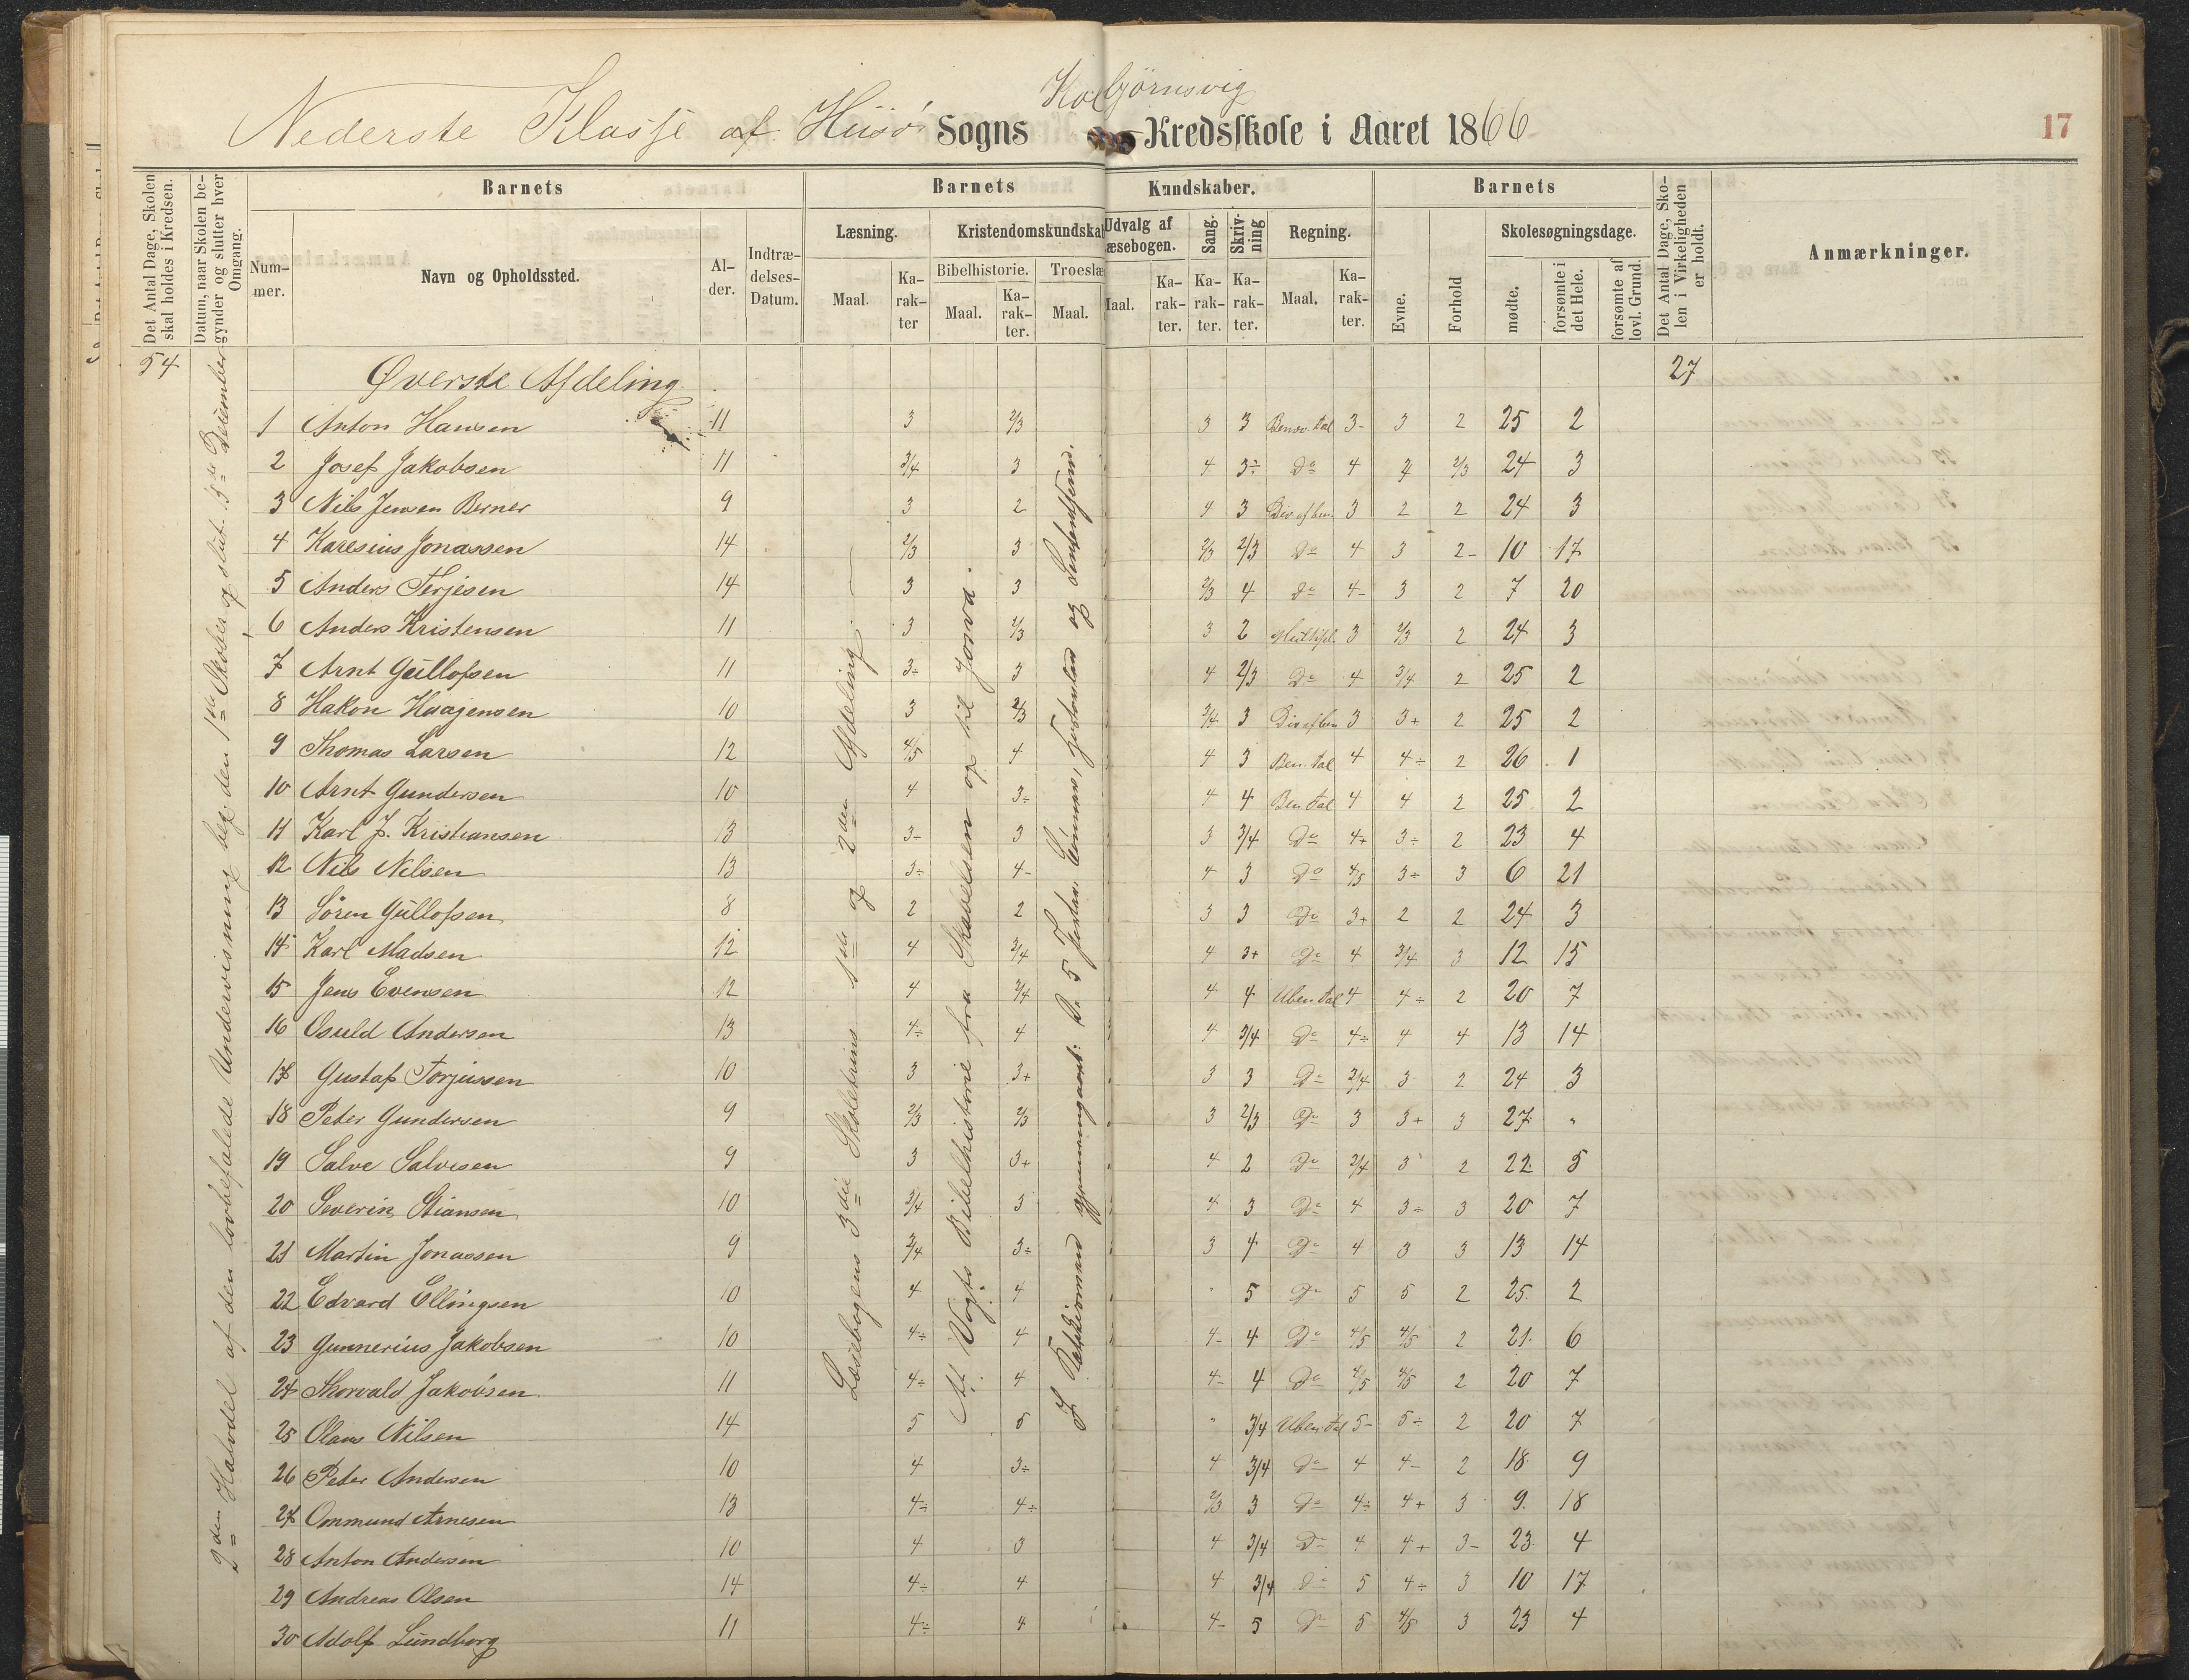 Kolbjörnsvig
Nederste Klasse af Hisö Sogns Kredsskole i Aaret 1866
17
Det Antal Dage, Skolen skal holdes i Kredsen.
Datum, naar Skolen begynder og slutter hver Omgang.
Barnets
Nummer.
Navn og Opholdssted.
Alder.
Indtrædelses-Datum.
Barnets Kundskaber.
Læsning.
Maal.
Karakter
Kristendomskundska
Bibelhistorie.
Maal.
Karakter.
Troeslæ
Maal.
Udvalg af
æsebogen.
Maal.
Karakter.
Sang.
Karakter.
Skrivning
Karakter.
Regning.
Maal.
Karakter.
Barnets
Evne.
Forhold
Skolesøgningsdage.
mødte.
forsømte i det Hele.
forsømte af lovl. Grund.
Det Antal Dage, Skolen i Virkeligheden er holdt.
Anmærkninger.
54 Øverste Afdeling 27
2den Halvdel af den lovbefalede Undervisning beg. den 1ste Oktober og slut. 15de December
Læsebogens 3die Skoletrins 1ste og 2den Afdeling.
Af Vogts Bibelhistorie fra Skabelsen op til Josva.
1 Anton Hansen 11 3 2/3 3 3 Benæv. Tal 3- 3 2 25 2
2 Josef Jakobsen 11 3/4 3 4 3÷ Do 4 4 2/3 24 3
3 Nils Jensen Berner 9 3 2 4 3 Div. af ben. 3 2 2 24 3
4 Karesius Jonassen 14 2/3 3 2/3 2/3 Do 4 3 2- 10 17
5 Anders Terjesen 14 3 3 2/3 4 Do 4- 3 2 7 20
6 Anders Kristensen 11 3 2/3 3 2 Multipl. 3 2/3 2 24 3
7 Arnt Gullofsen 11 3÷ 3 4 2/3 Do 4 3/4 2 25 2
8 Hakon Haagensen 10 3 2/3 3/4 3 Div af ben 3 3+ 2 25 2
9 Thomas Larsen 12 4/5 4 4 3 Ben. Tal 4 4÷ 2 26 1
10 Arnt Gundersen 10 4 3÷ 4 4 Ben Tal 4 4 2 25 2
11 Karl J. Kristiansen 13 3- 3 3 3/4 Do 4+ 3÷ 2 23 4
12 Nils Nilsen 13 3÷ 4- 4 3 Do 4/5 3÷ 3 6 21
13 Sören Gullofsen 8 2 2 3 3 Do 3+ 2 2 24 3
14 Karl Madsen 12 4 3/4 4 3+ Do 4 3/4 3 12 15
15 Jens Evensen 12 4 3/4 4 4 Uben Tal 4 4÷ 2 20 7
16 Osuld Andersen 13 4÷ 4 4 3/4 Do 4÷ 4 4 13 14
17 Gustaf Torjussen 10 3 3+ 3 3 Do 3/4 3 2 24 3
18 Peter Gundersen 9 2/3 2/3 3 2/3 Do 3 3+ 3 27 "
19 Salve Salvesen 9 3 3+ 4 2 Do 3/4 3 2 22 5
20 Severin Stiansen 10 3/4 3 4 3 Do 4 3÷ 3 20 7
21 Martin Jonassen 9 3/4 3÷ 3 4 Do 4 3 3 13 14
22 Edvard Ellingsen 10 4 4 " 5 Do 5 5 2 25 2
23 Gunnerius Jakobsen 10 4÷ 4 4- 4 Do 4/5 4/5 2 21 6
24 Thorvald Jakobsen 11 4÷ 4 4- 4 Do 4/5 4/5 2 20 7
25 Olaus Nilsen 14 5 5 " 3/4 Uben Tal 5- 5÷ 2 20 7
26 Peter Andersen 10 4 3÷ 4 3/4 Do 4 4- 2 18 9
27 Ommund Arnesen 13 4÷ 4÷ 2/3 3 Do 4÷ 4+ 3 9 18
28 Anton Andersen 10 4 3 4 3/4 Do 4 4+ 3- 23 4
29 Andreas Olsen 14 4÷ 4 4 3/4 Do 5 4÷ 3 10 17
30 Adolf Lundborg 11 4÷ 4 4- 5 Do 5 4/5 3 23 4